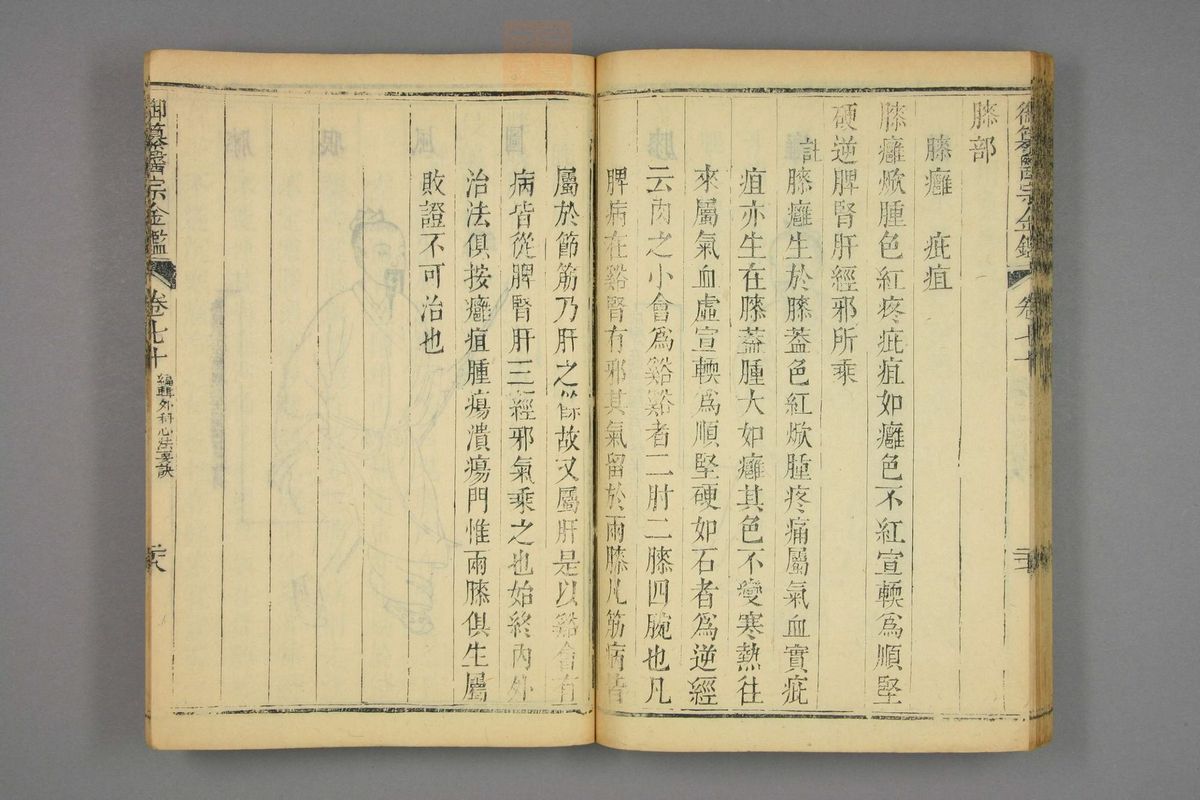 膝部
膝癰　疵疽
膝癰焮腫色紅疼疵疽如癰色不紅宣輭爲順堅
硬逆脾腎肝經邪所乘
註膝癰生於膝蓋色紅焮腫疼痛屬氣血實疵
疽亦生在膝蓋腫大如癰其色不變寒熱往
來屬氣血虛宣輭爲順堅硬如石者爲逆經
云肉之小會爲谿谿者二肘二膝四腕也凡
脾病在谿腎有邪其氣留於兩膝凡筋病皆
屬於節筋乃肝之餘故又屬肝是以谿會有
病皆從脾腎肝三經邪氣乘之也始終內外
治法俱按癰疽腫瘍潰瘍門惟兩膝俱生屬
敗證不可治也
御纂醫宗金鑑
卷七十
編輯外科心法要訣